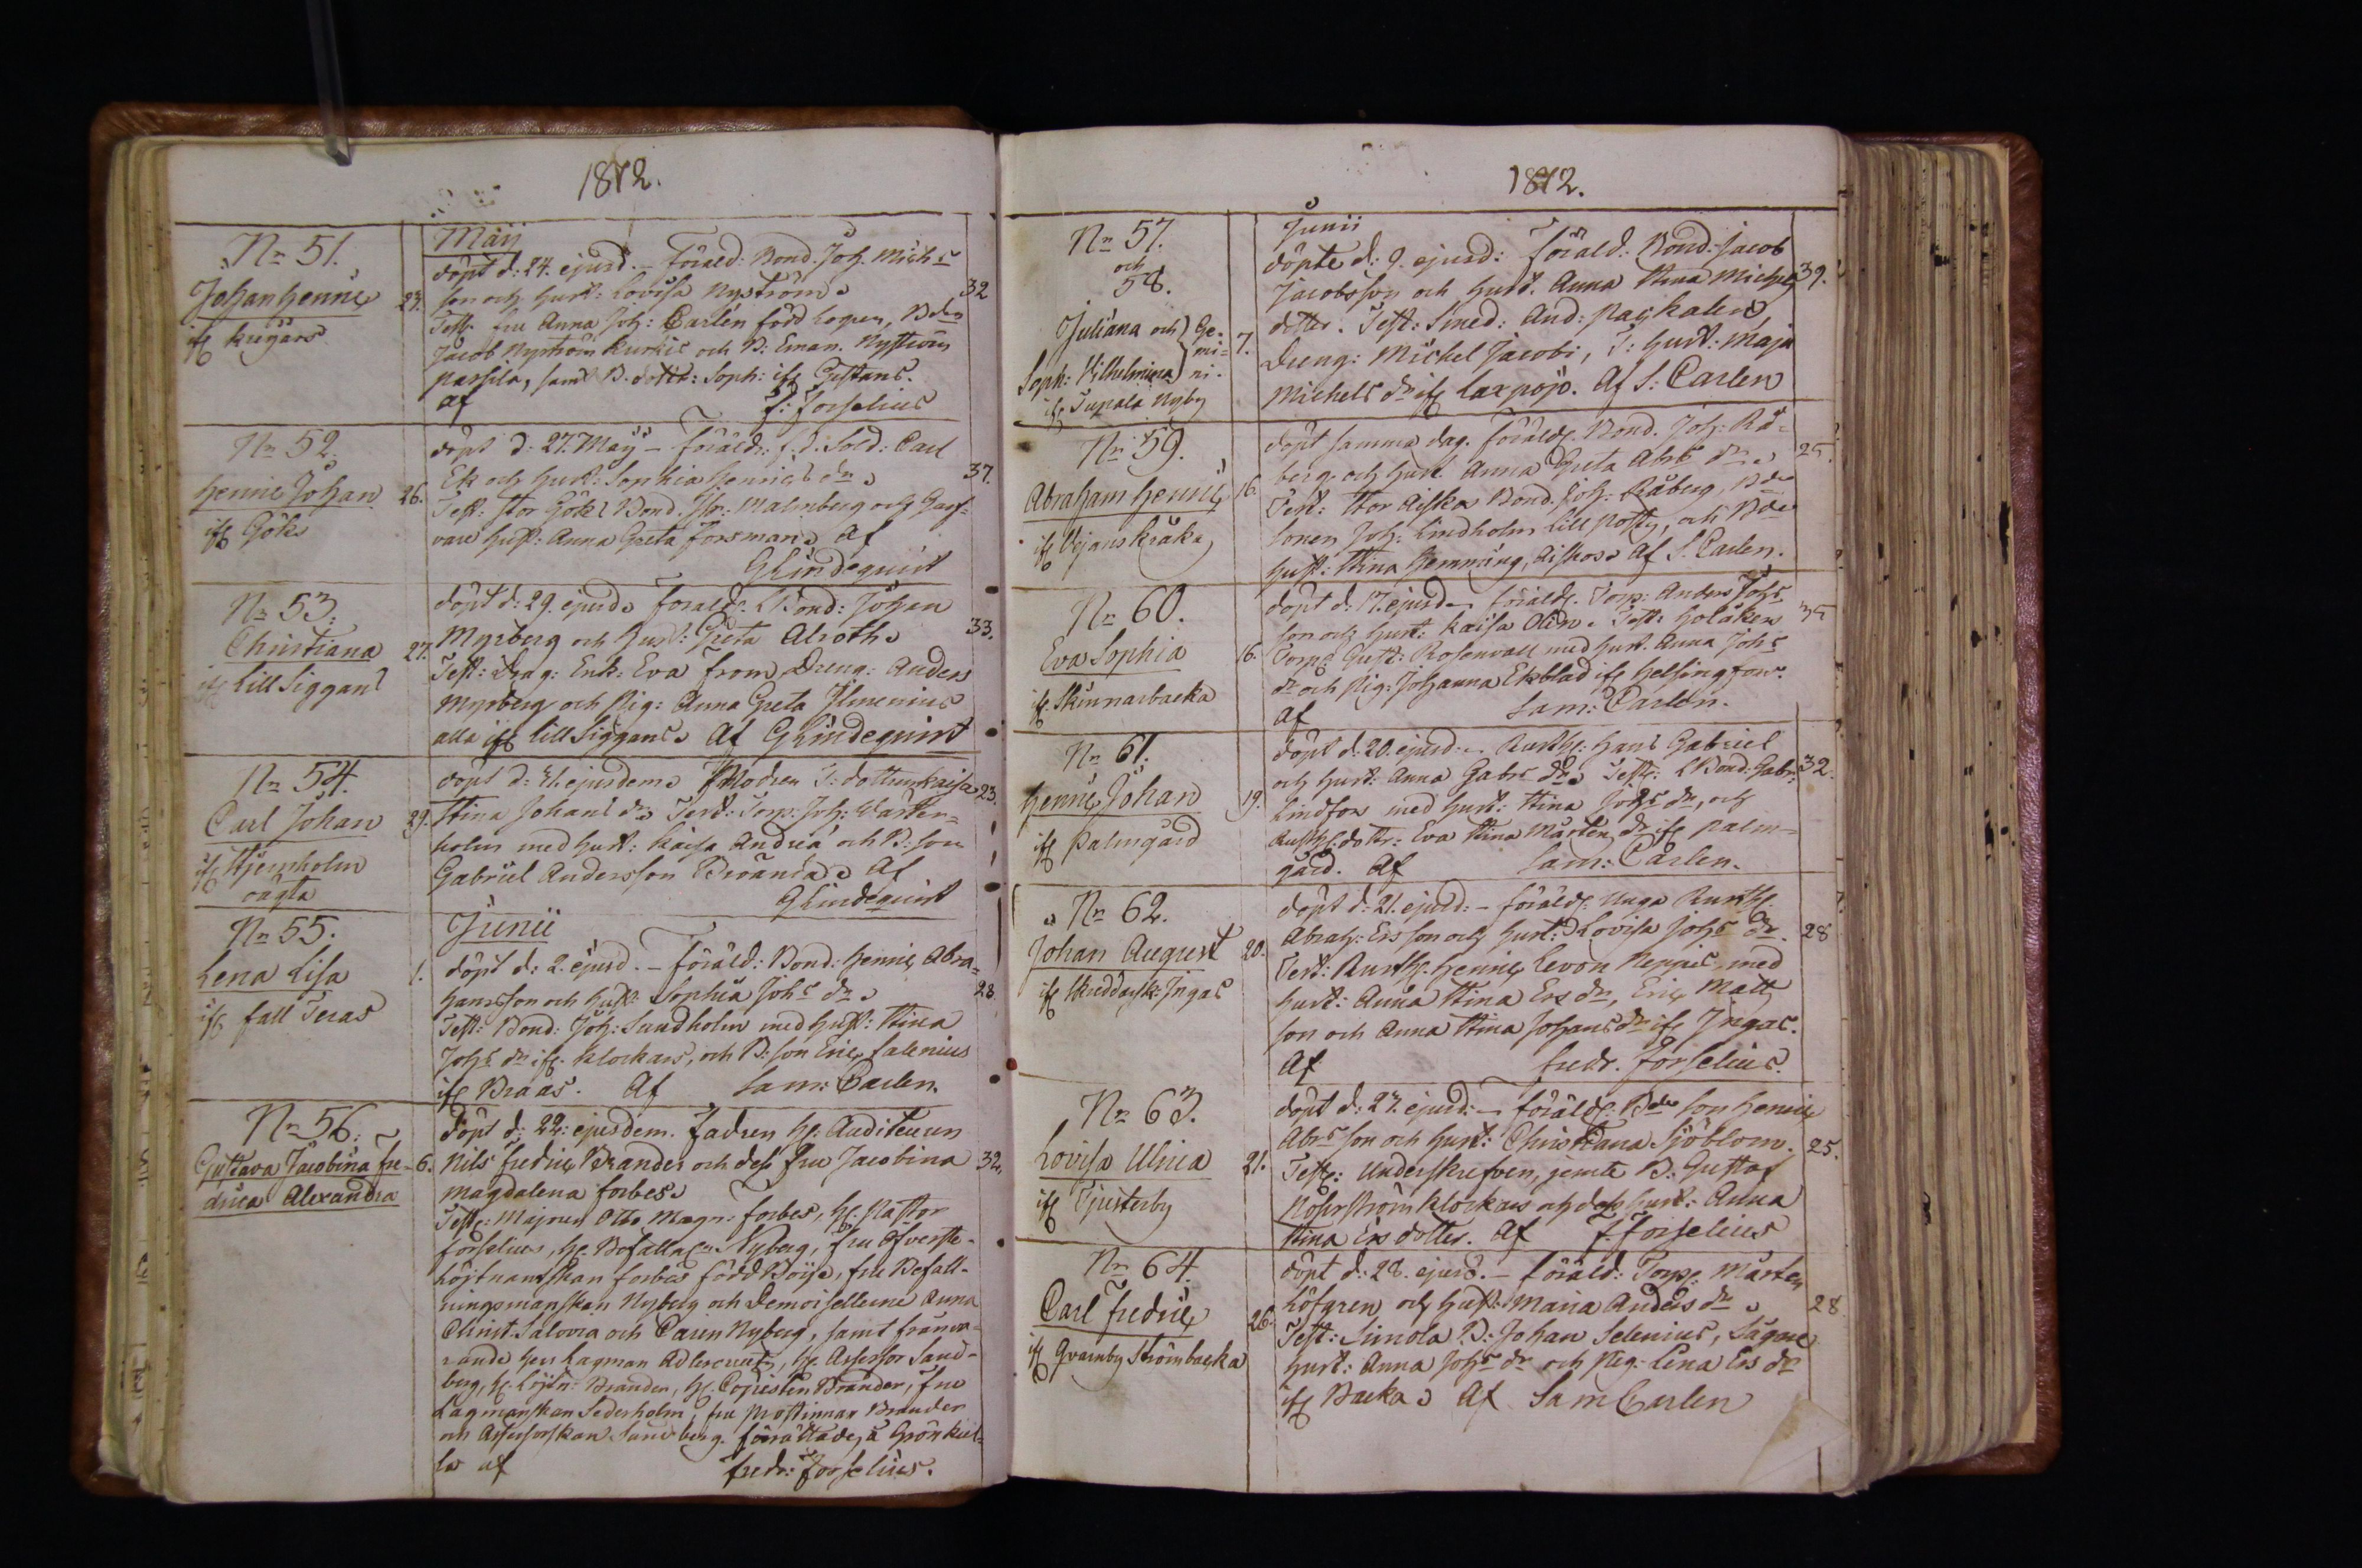 1812.
Nr 51.
Johan Henric
ifr Kregars
23.
Maij
döpt d: 24. ejusd. - Föräld: Bond. Joh. Michs
son och hust: Lovisa Nyström.
32
Test: fru Anna Joh: Carlén född
Jacob Nyström Kurkis och B: Eman. Nyström
samt B. dotter: Soph: ifr Gustans.
af F: Forselius
Nr 52.
Henric Johan
ifr Göks
26.
döpt d: 27. Maij - Föräldr: f.d. Sold: Carl
Ek och hust: Sophia Henrics dr.
37.
Test: Stor Göks Bond. Malmberg och
hust: Anna Greta Forsman. af
G Lindequist
Nr 53.
Christiana
ifr Lill Siggans
27.
döpt d: 29. ejusd. Föräldr. LBond: Johan
Myrberg och hust: Greta Alroth.
33.
Test: Drag: Enk: Eva From, Dreng: Anders
Myrberg och Pig: Anna Greta Ilmenius
alla ifr Lill Siggans. Af G Lindequist
Nr 54.
Carl Johan
ifr Stjernholm
oägta
29.
döpt d: 31. ejusdem. Modren T: dottern Kaisa
23.
Stina Johans dr. Test: Torp: Joh: Waster=
holm med hust: Kaisa Andrea och B: son
Gabriel Andersson Broända. Af
G Lindequist
Nr 55.
Lena Lisa
ifr fall Teras
1.
Junii
döpt d: 2. ejusd. - Föräld: Bond: Henric Abra-
hamsson och hust: Sophia Johs dr.
28.
Test: Bond: Joh: Sundholm med hust: Stina
Johs dr ifr Klockars, och B: son Eric Salenius
ifr Braas. Af Sam: Carlen.
Nr 56.
Gustava Jacobina Fre-
drica Alexandra
6.
döpt d: 22: ejusdem. Fadren Hr: Auditeuren
Nils Fredric Brander och dess fru Jacobina
32.
Magdalena Forbes.
Test: Majoren Otto Magn: Forbes, Hr. Pastor
Forselius, Hr. Befallnn Nyberg, fru Öfverste-
löjtnantskan Forbes född Boije, fru Befall-
ningsmanskan Nyberg och Demoisellerne Anna
Christ: Salovia och Carin Nyberg, samt frånva-
rande Herr Lagman Adlercreutz, Hr. Assessor Sand-
berg, Hr. Löjtn: Brander, Hr. Copisten Brander, fru
Lagmanskan Sederholm, fru Prostinnan Brander
och Assessorskan Sandberg. förrättades å Grönkul-
la af Fredr: Forselius.
1812.
Nr 57.
och
58.
Juliana och
Soph: Vilhelmina
Ge-
mi-
ni.
ifr Tupala Nyby
7.
Junii
döpte d: 9. ejusd: Föräld: Bond: Jacob
Jacobsson och hust. Anna Stina Michels
39.
dotter. Test: Smed: And: Paskalen,
Dreng: Michel Jacobs:, T: hust: Maja
Michels dr ifr Laxpojo. Af S: Carlen
Nr 59.
Abraham Henric
ifr Vejans Kräka
16.
döpt samma dag. Föräldr. Bond. Joh: Rå-
berg och hust Anna Greta Abrs dr.
25.
Test: Stor Aiska Bond. Joh. Råberg, Bde
sonen Joh: Lindholm Lill Posty, och Bde
hust: Stina Hemming, Aiskos. Af S. Carlen.
Nr 60.
Eva Sophia
ifr Skinnarbacka
16.
döpt d. 17. ejusd. Föräldr. Torp: Anders Johs
son och hust: Kaisa Olin. Test: Holåkers
35
Torpe Gust: Rosenvall med hust. Anna Johs
dr och Pig: Johanna Ekblad ifr Helsingfors.
af Sam: Carlen.
Nr 61.
Henric Johan
ifr Palmgård
19.
döpt d. 20. ejusd. Rusth: Hans Gabriel
och hust: Anna Gabrs dr. Test: LBond: Gabr:
32.
Lindfors med hust: Stina Johs dr, och
Rusth: dottr: Eva Stina Mårtens dr ifr Palm=
gård. Af Sam: Carlen.
Nr 62.
Johan August
ifr Skeddarsk: Ingas
20.
döpt d: 21. ejusd: - Föräldr. Unga Rusth.
Abrah: Ersson och hust: Lovisa Johs dr.
28
Test: Rusth. Henric Levon Reppis, med
hust: Anna Stina Ers dr, Eric Matts
son och Anna Stina Johans dr ifr Ingas.
Af Fredr. Forselius.
Nr 63.
Lovisa Ulrica
ifr Tjusterby
21.
döpt d: 27. ejusd: - Föräldr. Bde son Henric
Abrs son och hust: Christiana Sjöblom.
25.
Test: Underskrefven, jemte B: Gustaf
Nohrström Klockars och dess hust: Anna
Stina Ers dotter. Af F: Forselius
Nr 64.
Carl Fredric
ifr Qvarnby Strömbacka
26.
döpt d: 28. ejusd. - Föräld: Torp: Mårten
Löfgren och hust: Maria Anders dr.
28
Test: Simola B: Johan Selenius, Sågare
hust: Anna Johs dr och Pig: Lena Ers dr
ifr Backa. Af Sam Carlen